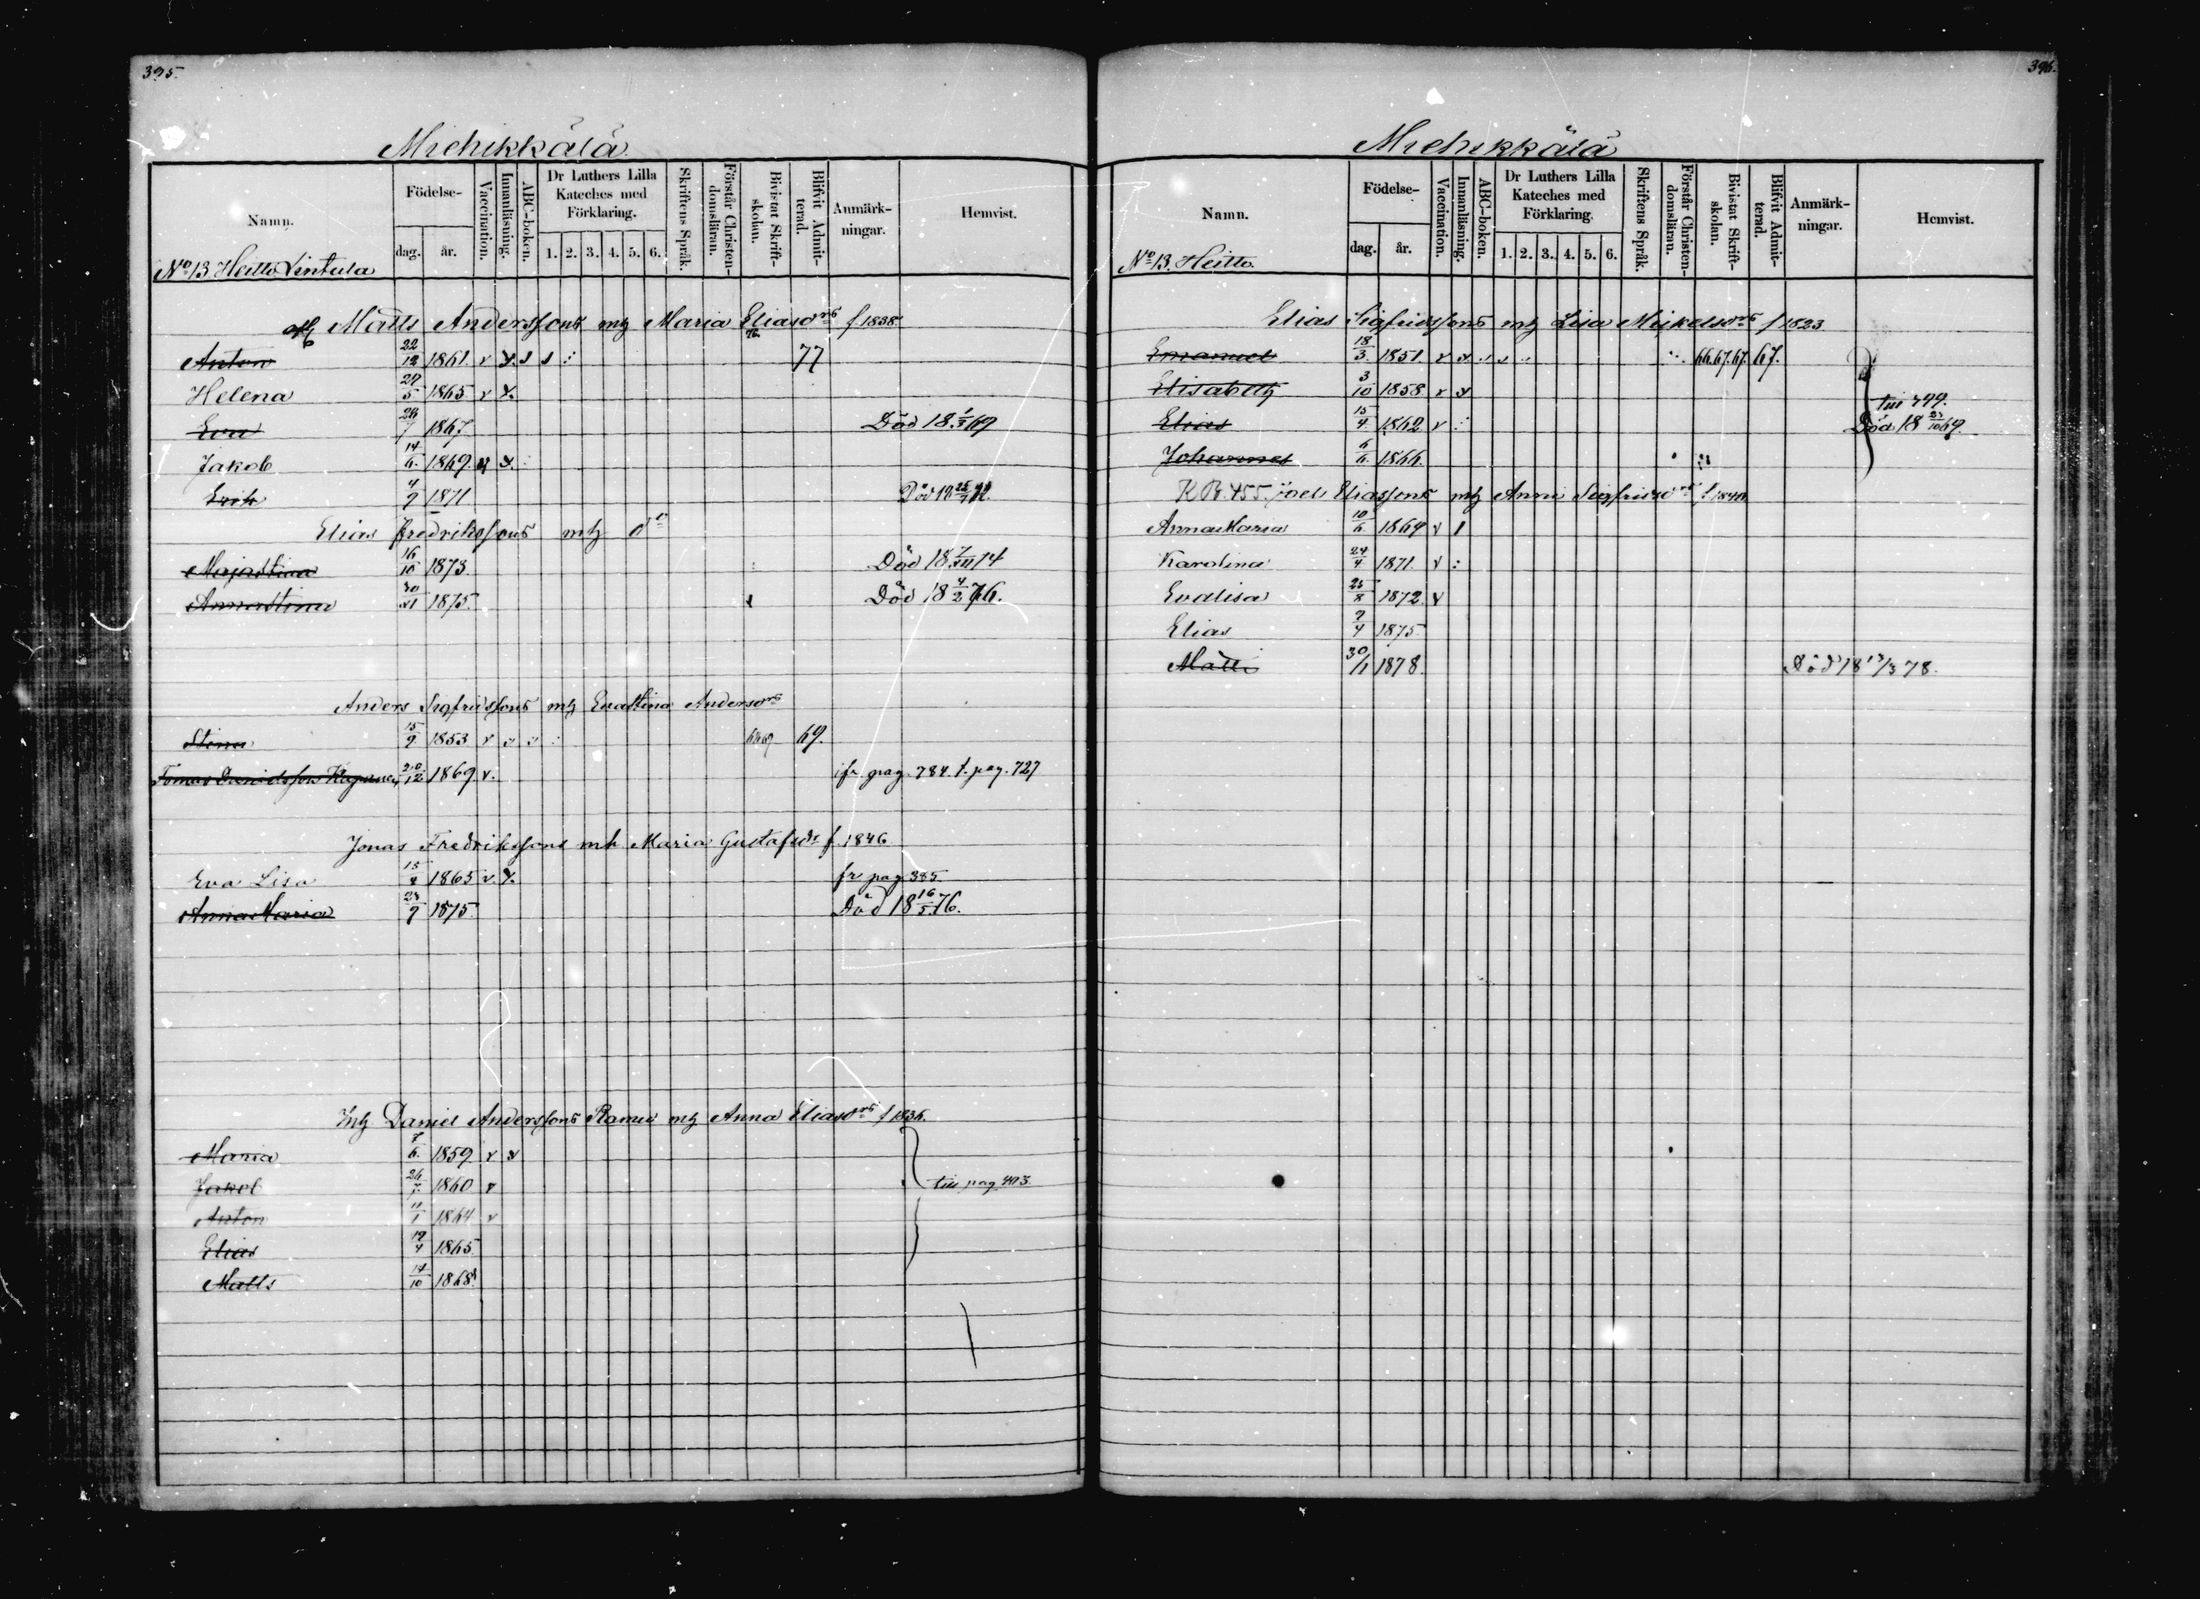 395.
Miehikkälä
Namn.
Födelse-
dag. år.
Vaccination.
Innanläsning.
ABC-boken.
Dr Luthers Lilla Kateches med Förklaring.
1. 2. 3. 4. 5. 6.
Skriftens Språk.
Förstår Christen-domsläran.
Bivistat Skrift-skolan.
Blifvit Admit-terad.
Anmärk-ningar.
Hemvist.
No 13 Heitto Lintula
Matts Anderssons mh Maria Eliasdrs f 1838
Anton 22/12 1861. v 77
Helena 29/5 1865 v
Eva 1867 Död 18 1/3 69
Jakob 14/6 1869
Erik 4/9 1871 Död 18
Elias Fredrikssons mh do
Majastina 16/10 1873. Död 18 7/VII 74
Annastina 30/XI 1875. Död 18 4/2 76.
Anders Sigfridssons mh Evastina Andersdrs
Stina 15/9 1853 v 69.
Tomas Danielsson 20/12 1869. v. fr pag. 784. t. pag. 727
Jonas Fredrikssons mh Maria Gustafsdr f. 1846
Eva Lisa 1865 v. fr pag 385
Anna Maria 23/9 1875. Död 18 16/5 76.
Inh Daniel Anderssons mh Anna Eliasdrs f 1836.
Maria 7/6 1859 v
Jakob 1860 v till pag 413
Anton 1864 v
Elias 19/4 1865
Matts 14/10 1868
396.
Miehikkälä
Namn.
Födelse-
dag. år.
Vaccination.
Innanläsning.
ABC-boken.
Dr Luthers Lilla Kateches med Förklaring.
1. 2. 3. 4. 5. 6.
Skriftens Språk.
Förstår Christen-domsläran.
Bivistat Skrift-skolan.
Blifvit Admit-terad.
Anmärk-ningar.
Hemvist.
No 13. Heitto
Elias Sigfridssons mh Lisa Mikelsdrs f 1823
Emanuel 18/3 1851 v 66.67.67. 67.
Elisabeth 3/10 1858 v
till 799.
Elias 15/4 1862 v Död 18 23/10 69.
Johannes 6/6 1866.
K.B. 455. Joel Eliassons mh Anna Sigfridsdrs f 1840
Anna Maria 10/6 1864 v
Karolina 24/4 1871. v
Evalisa 25/8 1872. v
Elias 9/4 1875
Matts 30/1 1878. Död 18 13/3 78.